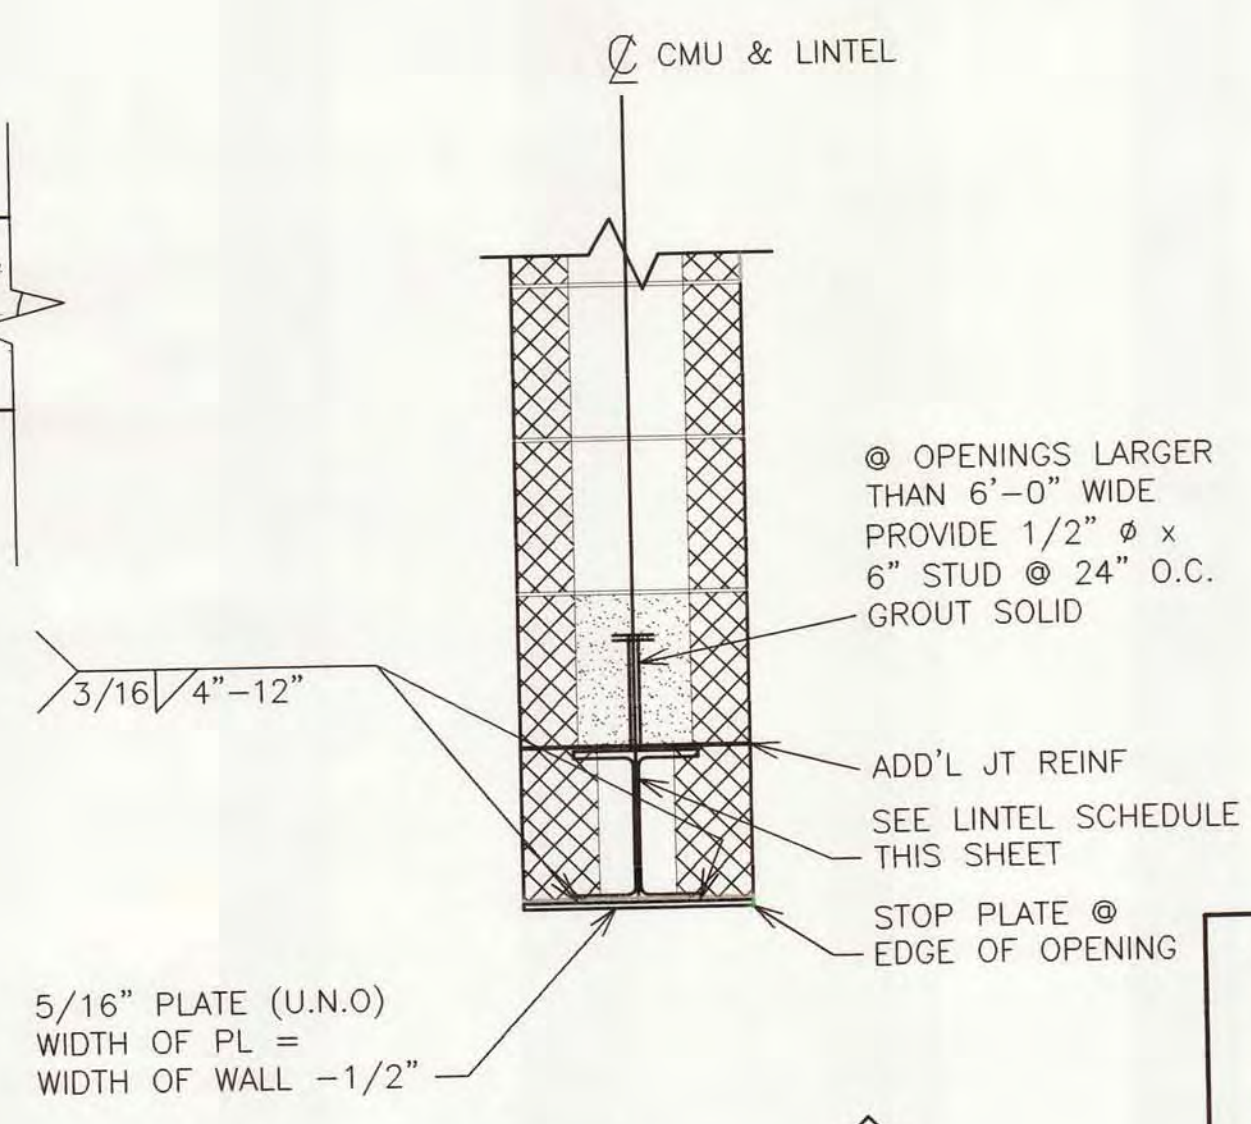 ℄ CMU & LINTEL
@ OPENINGS LARGER
THAN 6'-0" WIDE
PROVIDE 1/2" ø x
6" STUD @ 24" O.C.
GROUT SOLID
3/16 4"-12"
ADD'L JT REINF
SEE LINTEL SCHEDULE
THIS SHEET
STOP PLATE @
EDGE OF OPENING
5/16" PLATE (U.N.O)
WIDTH OF PL =
WIDTH OF WALL -1/2"